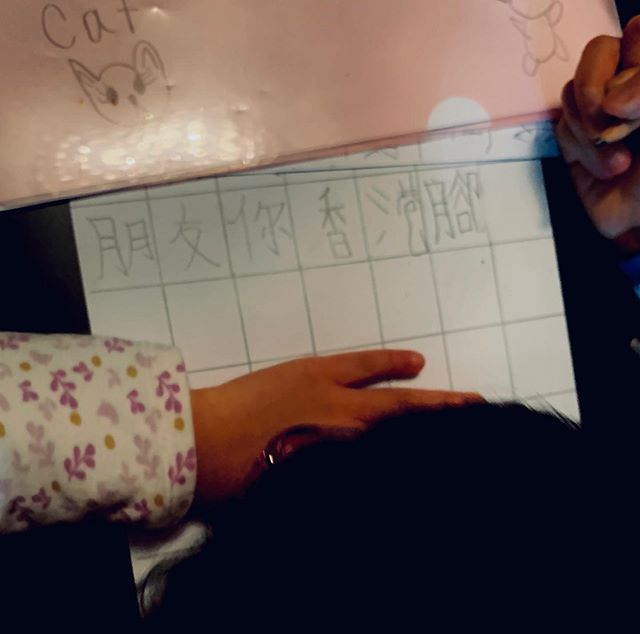 cat
朋友你香港腳